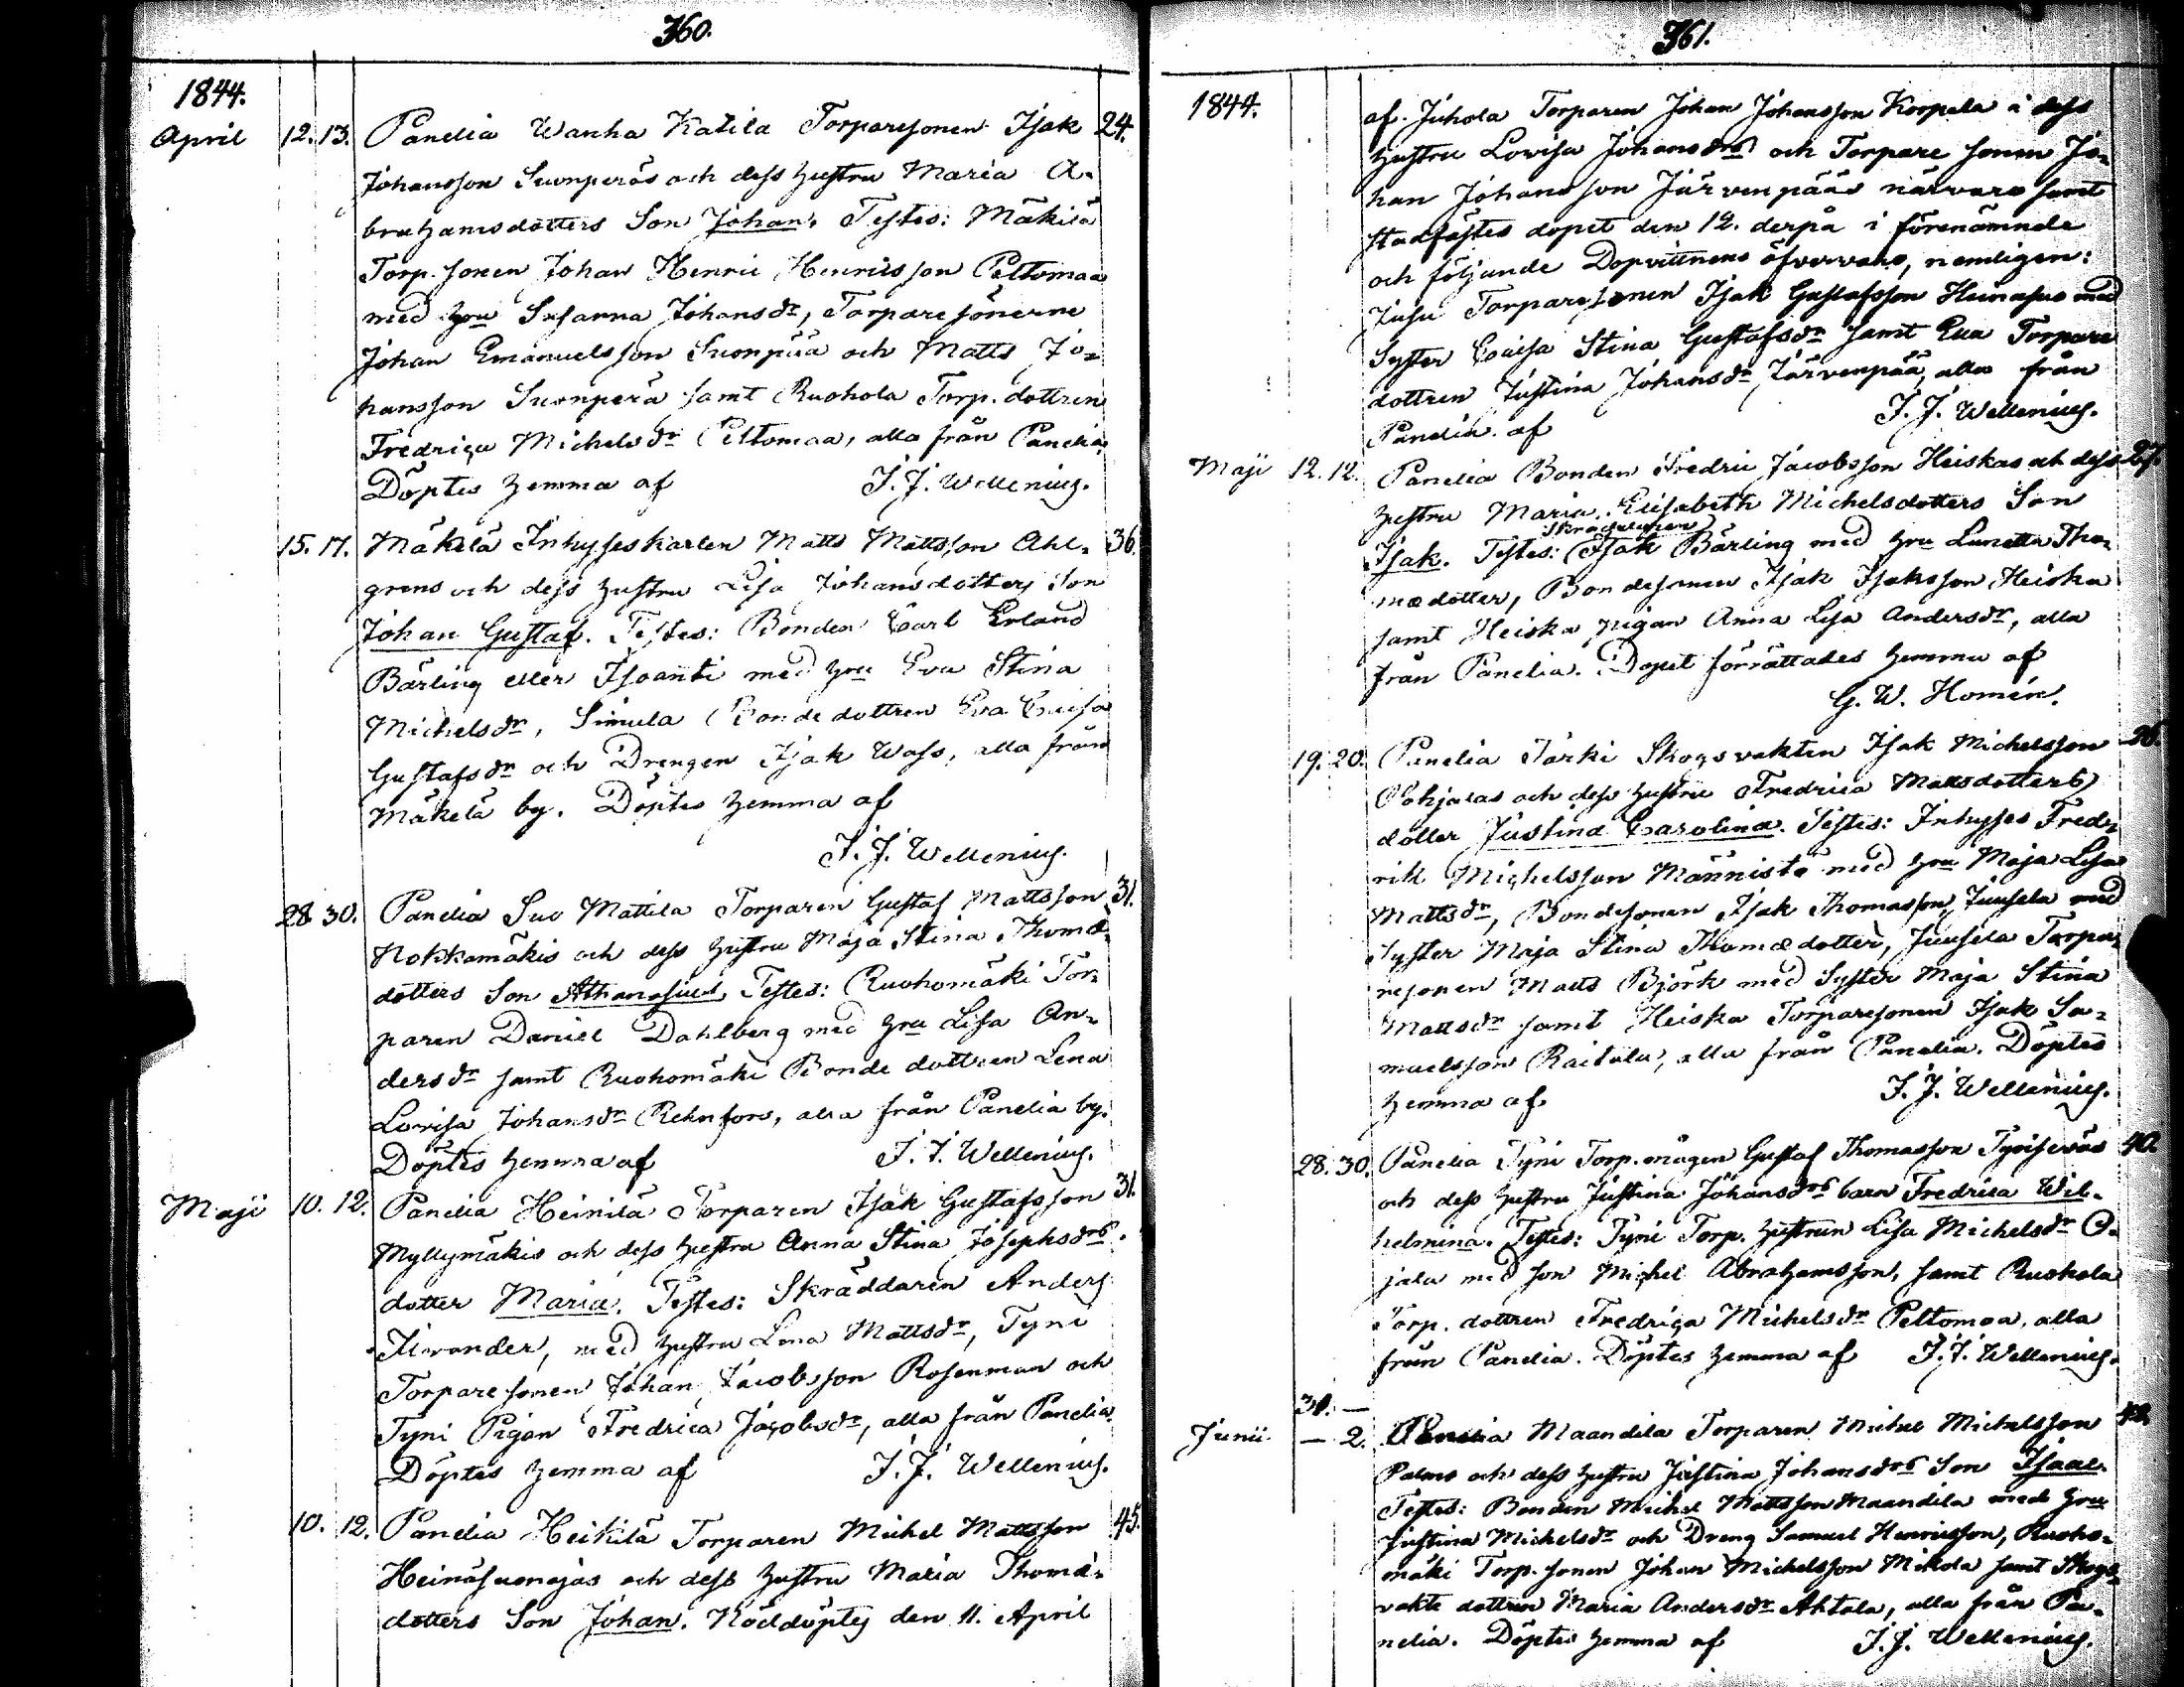 360.
1844.
April 12. 13. Panelia Wanha Katila Torparesonen Isak 24.
Johansson Suonperäs och dess hustru Maria A-
brahamsdotters Son Johan. Testes: Mäkilä
Torp. sonen Johan Henric Henricsson Peltomaa
med hru Susanna Johansdr, Torparesönerne
Johan Emanuelsson Suonpää och Matts Jo-
hansson Suonperä samt Ruohola Torp. dottren
Fredriqa Michelsdr Peltomaa, alla från Panelia.
Döptes hemma af J. J. Wellenius.
15. 17. Mäkelä Inhysseskarlen Matts Mattsson Ahl- 36.
grens och dess hustru Lisa Johansdotters Son
Johan Gustaf. Testes: Bonden Carl Erland
Bärling eller Isoantti med hru Eva Stina
Michelsdr, Simula Bondedottren Eva Caisa
Gustafsdr och Drengen Isak Wass, alla från
Mäkelä by. Döptes hemma af
J. J. Wellenius.
28 30. Panelia Suo Mattila Torparen Gustaf Mattsson 31.
Nokkamäkis och dess hustru Maja Stina Thomæ-
dotters Son Athanasius. Testes: Ruohomäki Tor-
paren Daniel Dahlberg med hru Lisa An-
dersdr samt Ruohomäki Bonde dottren Lena
Lovisa Johansdr Rehnfors, alla från Panelia by.
Döptes hemma af J. J. Wellenius.
Maji 10. 12. Panelia Heinilä Torparen Isak Gustafsson 31.
Myllymäkis och dess hustru Anna Stina Josephsdrs
dotter Maria. Testes: Skräddaren Anders
med hustru Lena Mattsdr, Tyni
Torparesonen Johan Jacobsson Rosenman och
Tyni Pigan Fredrica Jacobsdr, alla från Panelia.
Döptes hemma af J. J. Wellenius.
10. 12. Panelia Heikilä Torparen Michel Mattsson 45.
Heinäsuonojas och dess hustru Maria Thomæ-
dotters Son Johan. Nöddöptes den 11. April
361.
1844.
af Juhola Torparen Johan Johansson Korpela i dess
hustru Lovisa Johansdrs och Torpare sonen Jo-
han Johansson Järvenpääs närvaro samt
stadfästes dopet den 12. derpå i förenämnde
och följande Dopvittnens öfvervaro, nemligen:
Juhu Torparesonen Isak Gustafsson Heinäsuo med
Syster Caisa Stina Gustafsdr samt Eua Torpare
dottren Justina Johansdr Järvenpää, alla från
Panelia. af J. J. Wellenius.
Maji 12. 12. Panelia Bonden Fredric Jacobsson Heiskas och dess 27.
hustru Maria Elisabeth Michelsdotters Son
Isak. Testes: Isak Bärling med hru Lunetta Tho-
mædotter, Bondesonen Isak Isaksson Heiska
samt Heiska pigan Anna Lisa Andersdr, alla
från Panelia. Dopet förrättades hemma af
G. W. Homén.
19. 20. Panelia Tarki Skogsvakten Isak Michelsson 26.
Pohjalas och dess hustru Fredrica Mattsdotters
dotter Justina Carolina. Testes: Inhysses Fred-
rik Michelsson Männistö med hru Maja Lisa
Mattsdr, Bondesonen Isak Thomasson Juusela med
syster Maja Stina Thomædotter, Juusela Torpa-
resonen Matts Björk med Syster Maja Stina
Mattsdr samt Heiska Torparesonen Isak Sa-
muelsson Raitala, alla från Panelia. Döptes
hemma af J. J. Wellenius.
28. 30. Panelia Tyni Torp. mågen Gustaf Thomasson 40.
och dess hustru Justina Johansdrs barn Fredrica Wil-
helmina. Testes: Tyni Torp. hustrun Lisa Michelsdr O-
jala med son Michel Abrahamsson, samt Ruohola
Torp. dottren Fredriqa Michelsdr Peltomaa, alla
från Panelia. Döptes hemma af J. J. Wellenius.
31. —
Junii — 2. Panelia Maandila Torparen Michel Michelsson 42.
Palmo och dess hustru Justina Johansdrs Son Isaac.
Testes: Bonden Michel Mattsson Maandila med hru
Justina Michelsdr och Dreng Samuel Henricsson, Ruoho-
mäki Torp. sonen Johan Michelsson Mikola samt Skogs-
vakts dottren Maria Andersdr Ahtola, alla från Pa-
nelia. Döptes hemma af J. J. Wellenius.